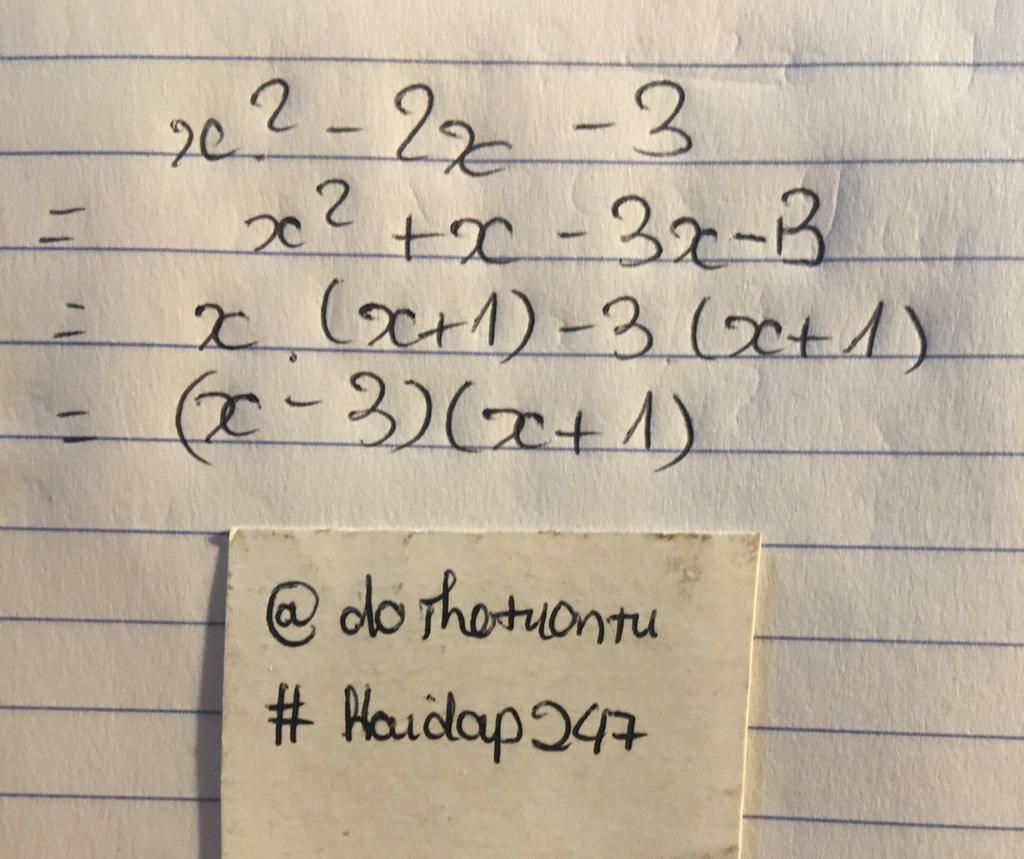 x² - 2x - 3
= x² + x - 3x - 3
= x . (x+1) - 3 . (x+1)
= (x - 3)(x + 1)
@ dothetuantu
# Hoidap247